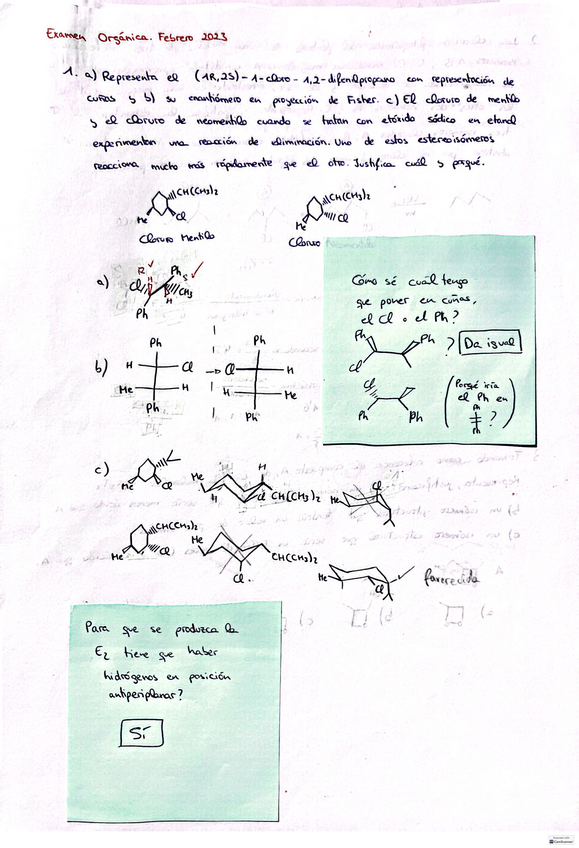 Examen Orgánica. Febrero 2023
1. a) Representa el (1R,2S)-1-cloro-1,2-difenilpropano con representación de
cuñas y b) su enantiómero en proyección de Fisher. c) El cloruro de mentilo
y el cloruro de neomentilo cuando se tratan con etóxido sódico en etanol
experimentan una reacción de eliminación. Uno de estos estereoisómeros
reacciona mucho más rápidamente que el otro. Justifica cuál y porqué.
CH(CH3)2
Me
Cl
Cloruro Mentilo
CH(CH3)2
Me
Cl
Cloruro
a)
R
Ph
S
Cl
H
CH3
H
Ph
Cómo sé cuál tengo
que poner en cuñas,
el Cl o el Ph?
Ph
Ph
Cl
?
Da igual
Cl
Ph
Ph
(Porqué iría
el Ph en
Ph
Ph
?)
b)
Ph
H
Cl
Me
H
Ph
Ph
Cl
H
H
Me
Ph
c)
Me
Cl
Me
H
H
H
Cl
CH(CH3)2
Me
Cl
CH(CH3)2
Me
Cl
Me
CH(CH3)2
Cl
Me
Cl
favorecida
Para que se produzca la
E2 tiene que haber
hidrógenos en posición
antiperiplanar?
Sí
CamScanner